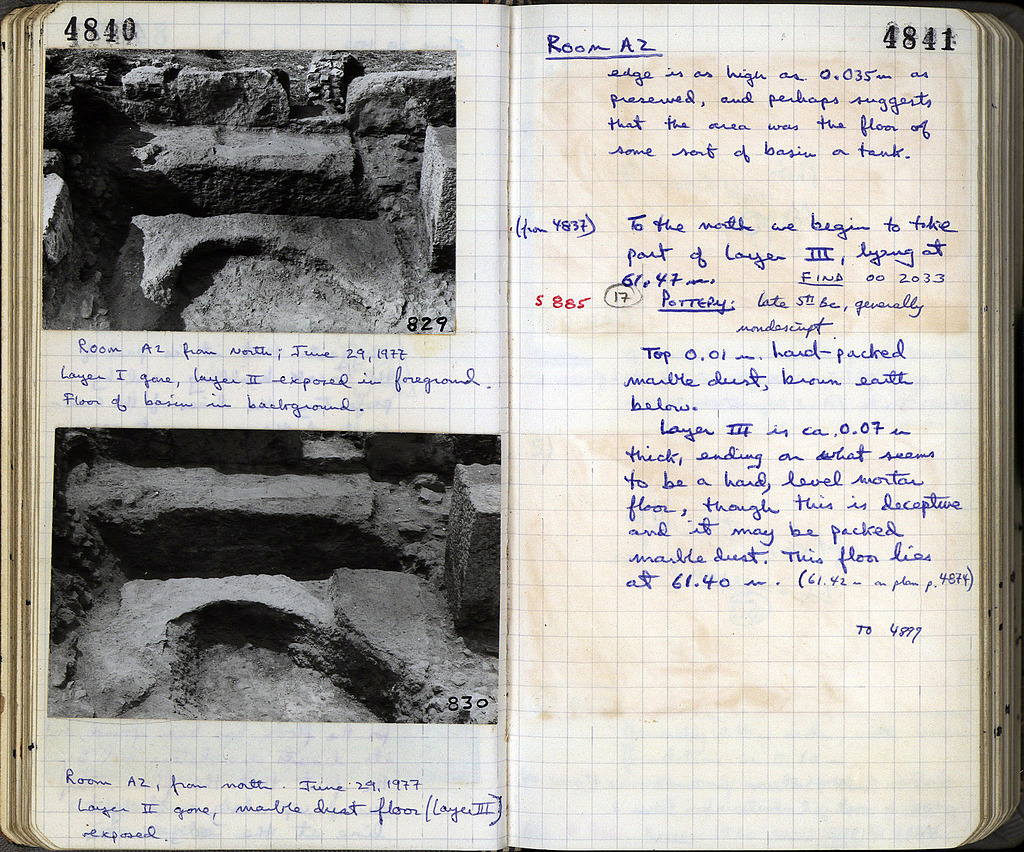 4840
829
Room A2 from North; June 29, 1977
Layer I gone, layer II exposed in foreground.
Floor of basin in background.
830
Room A2, from north. June 29, 1977
Layer II gone, marble dust floor (Layer III)
exposed.
4841
Room A2
edge is as high as 0.035 m as
preserved, and perhaps suggests
that the area was the floor of
some sort of basin or tank.
(from 4837) To the north we begin to take
part of layer III, lying at
61.47 m. FIND 00 2033
S 885 17 POTTERY: late 5th BC, generally
nondescript
Top 0.01 m. hard-packed
marble dust, brown earth
below.
Layer III is ca. 0.07 m
thick, ending on what seems
to be a hard, level mortar
floor, though this is deceptive
and it may be packed
marble dust. This floor lies
at 61.40 m. (61.42 m on plan p. 4874)
TO 4899